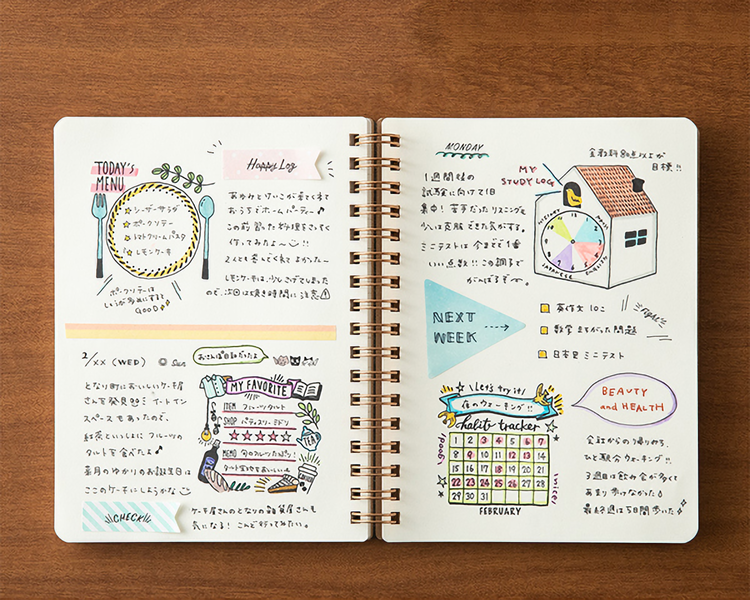 TODAY's
MENU
シーザーサラダ
ポークソテー
トマトクリームパスタ
レモンケーキ
ポークソテーは
しょうが多めにすると
GOOD
Happy Log
あゆみとけいこが来てくれて
おうちでホームパーティー♪
この前習った料理をさっそく
作ってみたよ〜!!
2人とも喜んでくれてよかった〜
レモンケーキは、少しこげてしまった
ので、次回は焼き時間に注意
2/××(WED) Sun
おさんぽ日和だったよ
となり町においしいケーキ屋
さんを発見 イートイン
スペースもあったので、
紅茶といっしょに フルーツの
タルトを食べたよ♪
来月のゆかりのお誕生日は
ここのケーキにしようかな
MY FAVORITE
ITEM フルーツタルト
SHOP パティスリーミドリ
★★★★☆
MEMO 旬のフルーツたっぷり!
タルト生地もおいしい
TEA
CHECK!
ケーキ屋さんのとなりの雑貨屋さんも
気になる! こんど行ってみたい。
MONDAY
1週間後の
試験に向けて1日
集中! 苦手だったリスニングも
少しは克服できた気がする。
ミニテストは今までで1番
いい点数!! この調子で
がんばるぞ〜。
MY
STUDY LOG
全教科80点以上が
目標!!
HISTORY
MATH
JAPANESE
ENGLISH
NEXT
WEEK
英作文10こ
数学まちがった問題
日本史ミニテスト
Fight!!
Let's try it!
夜のウォーキング!!
habit tracker
good!
nice!
1 2 3 4 5 6 7
8 9 10 11 12 13 14
15 16 17 18 19 20 21
22 23 24 25 26 27 28
29 30 31
FEBRUARY
BEAUTY
and HEALTH
会社からの帰り道、
ひと駅分ウォーキング!!
3週目は飲み会が多くて
あまり歩けなかった
最終週は5日間歩いた